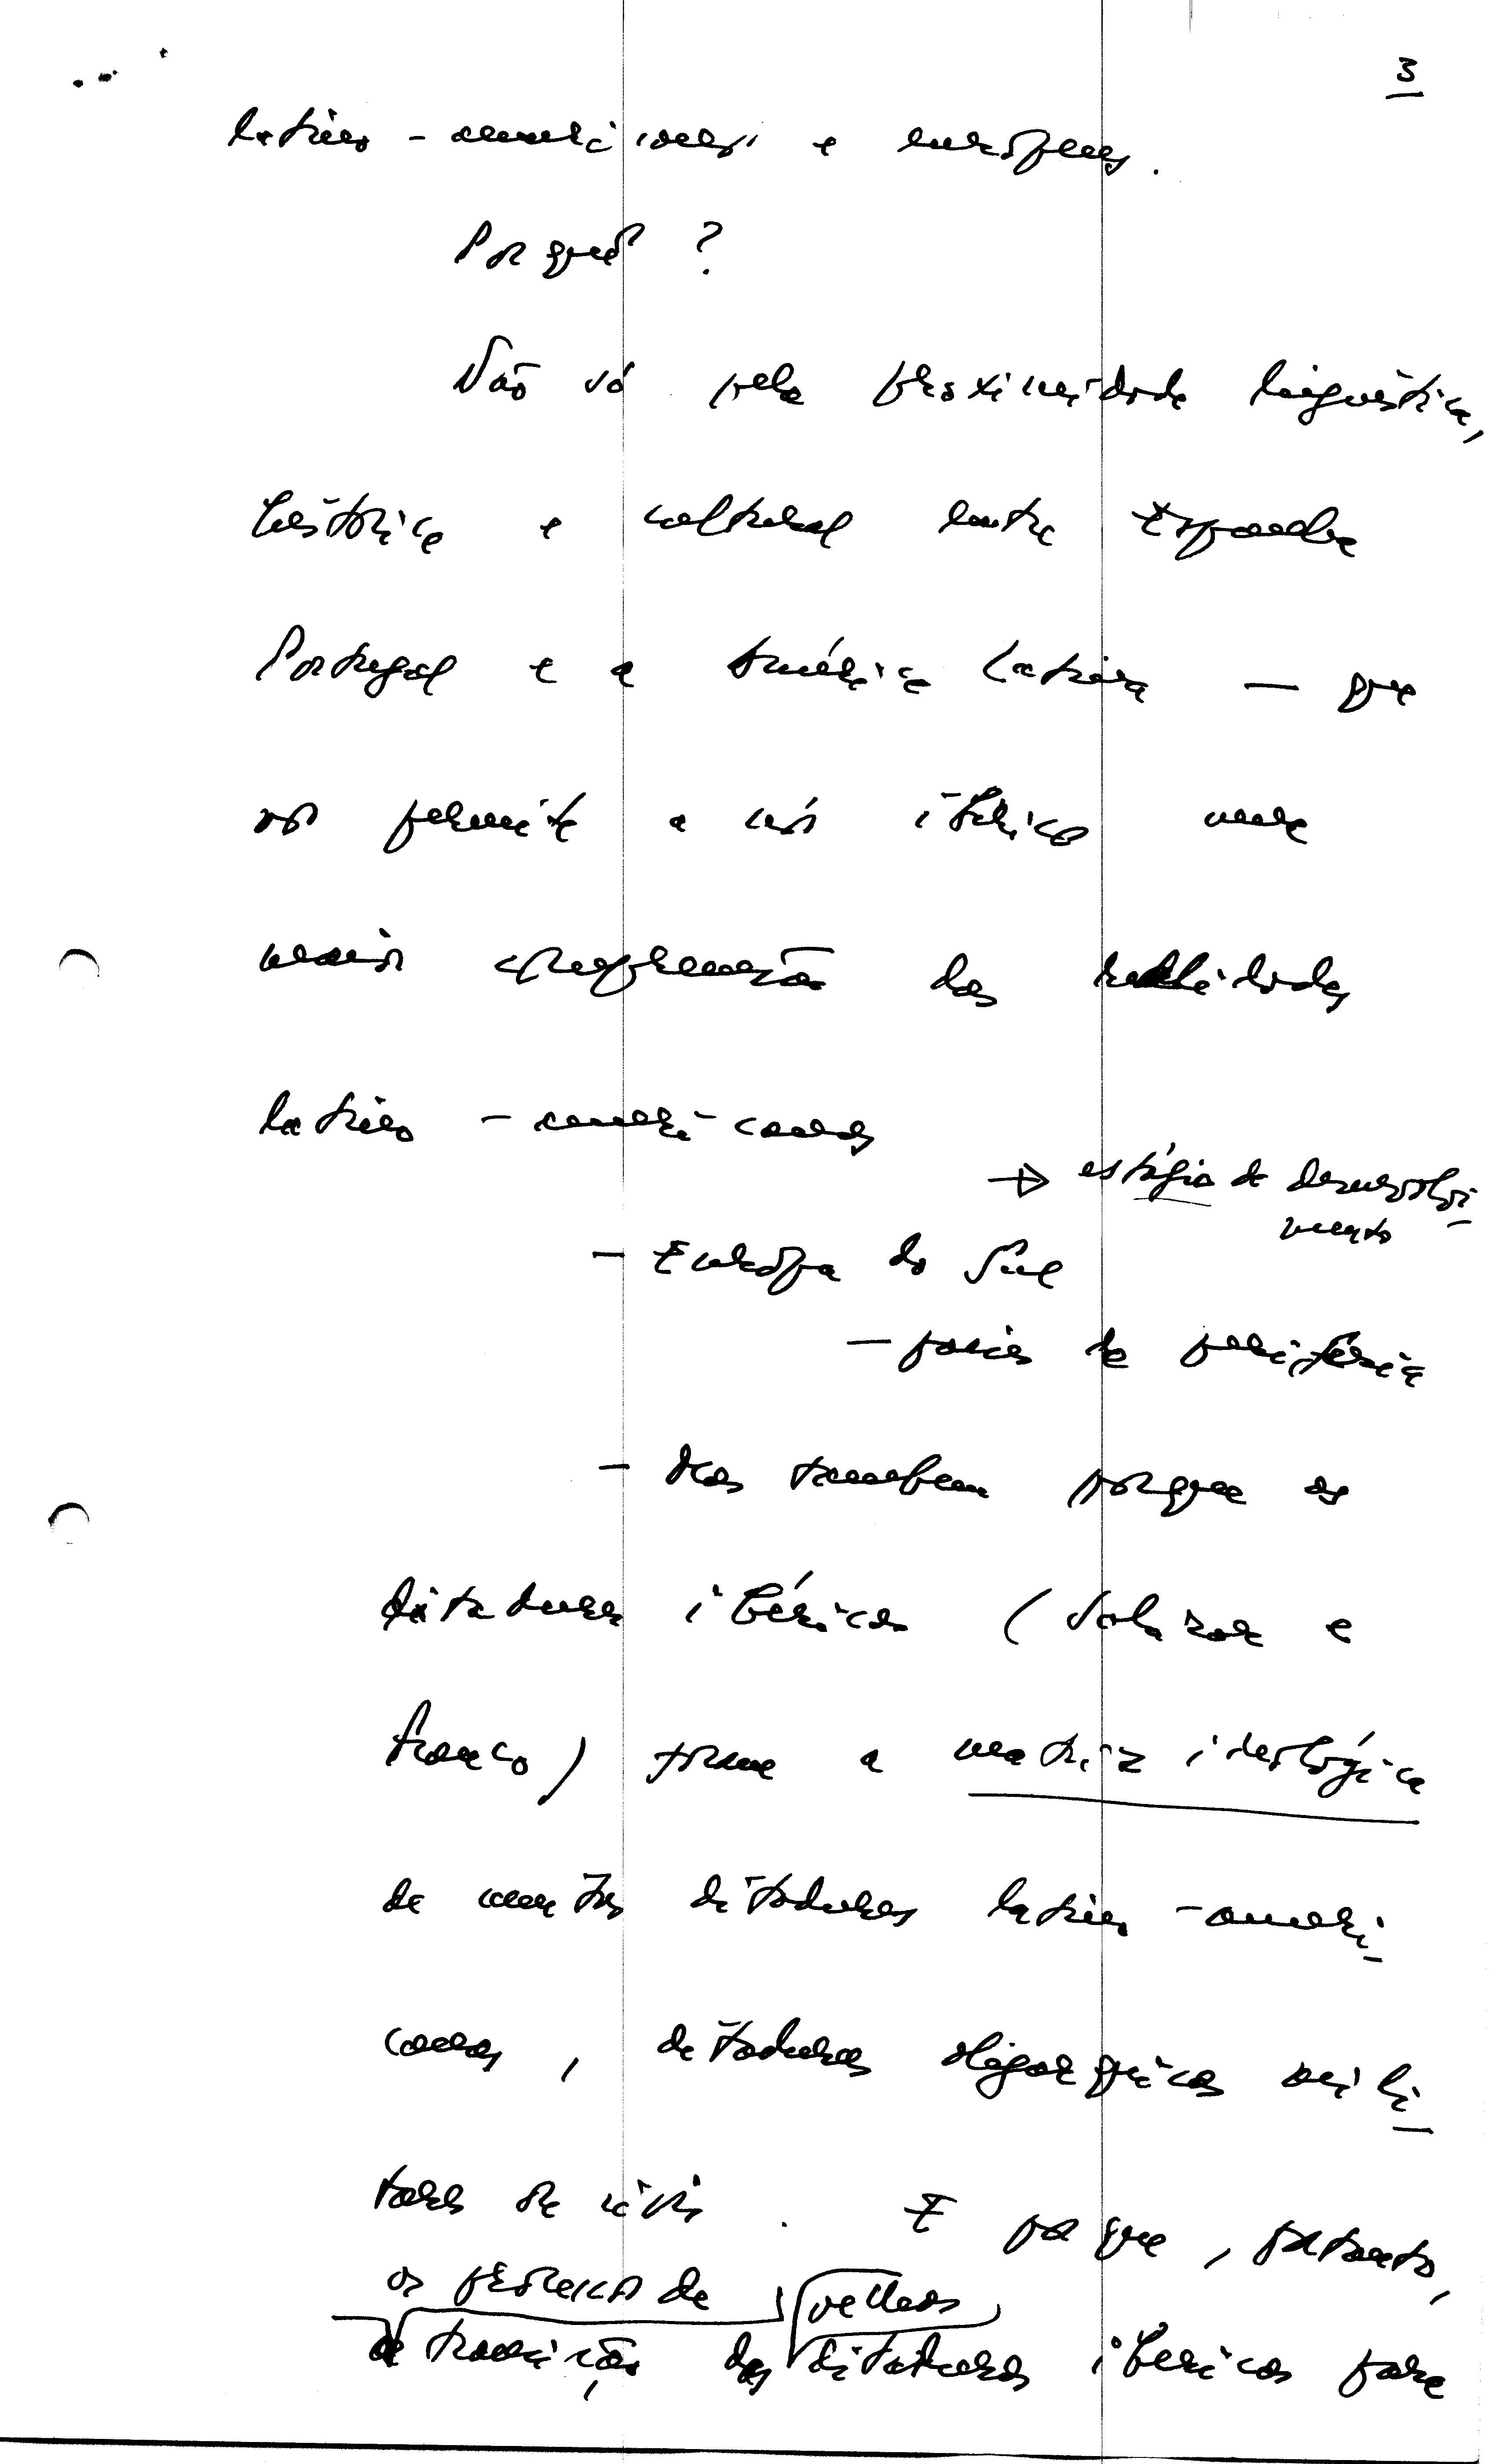 3
latino-americanos e europeus.
Porquê?
Não só pela proximidade linguística,
histórica e cultural entre Espanha
Portugal e a América Latina — que
nos permite a nós ibéricos uma
maior compreensão das realidades
latino-americanas
→ estágio de desenvolvi-
mento
- Europa do Sul
- países de periferia
- Mas também porque as
ditaduras ibéricas (Salazar e
Franco) foram a matriz ideológica
de muitas ditaduras latino-ameri-
canas, ditaduras oligárquicas mili-
tares ou civis. E porque, portanto,
os processos de velhas
transição das ditaduras ibéricas para